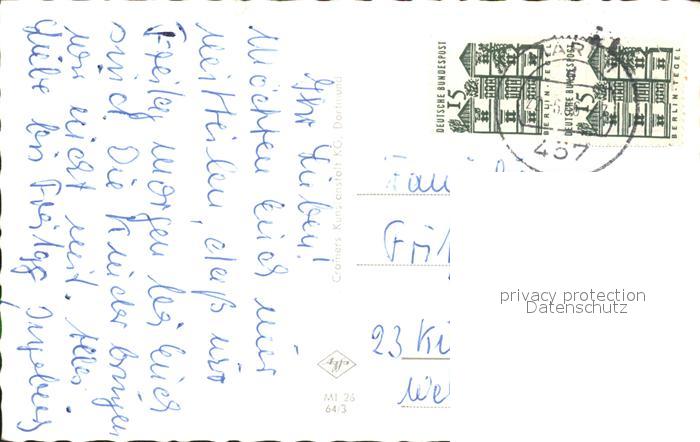 Ihr Lieben!
Möchten Euch nur
mitteilen, daß wir
Freitag morgen bei Euch
sind. Die Kinder bringen
wir nicht mit. Alles
Liebe bis Freitag Ingeborg
Cramers Kunstanstalt KG. Dortmund
MI 26
64/3
DEUTSCHE BUNDESPOST
15
BERLIN-TEGEL
DEUTSCHE BUNDESPOST
15
BERLIN-TEGEL
457
Fami
Frit
23 Ki
We
privacy protection
Datenschutz